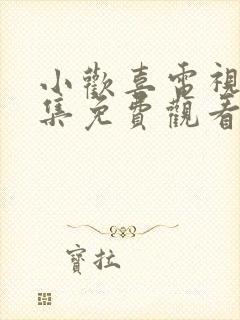 小歡喜電視
集免費觀看
寶拉